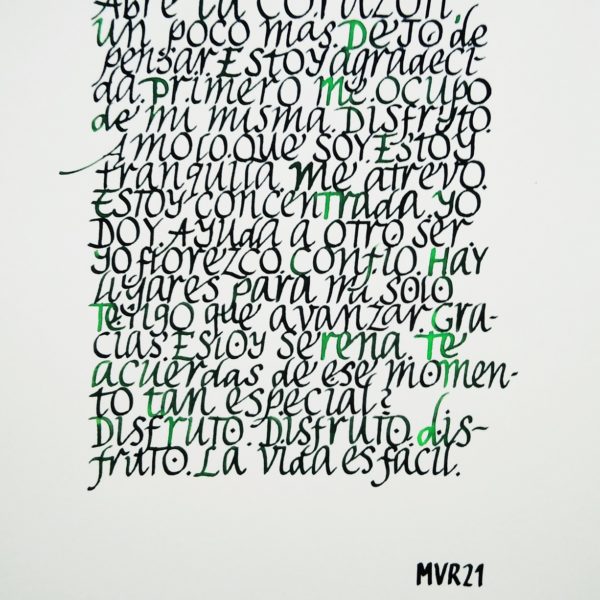 Abre la corazón,
un poco más. Dejo de
pensar. Estoy agradeci-
da. Primero me ocupo
de mi misma. Disfruto.
Amo lo que soy. Estoy
tranquila. Me atrevo.
Estoy concentrada. Yo
doy. Ayuda a otro ser.
Yo florezco. Confío. Hay
lugares para mi solo
tengo que avanzar. Gra-
cias. Estoy serena. Te
acuerdas de ese momen-
to tan especial?
Disfruto. Disfruto. dis-
fruto. La vida es fácil.
MVR21